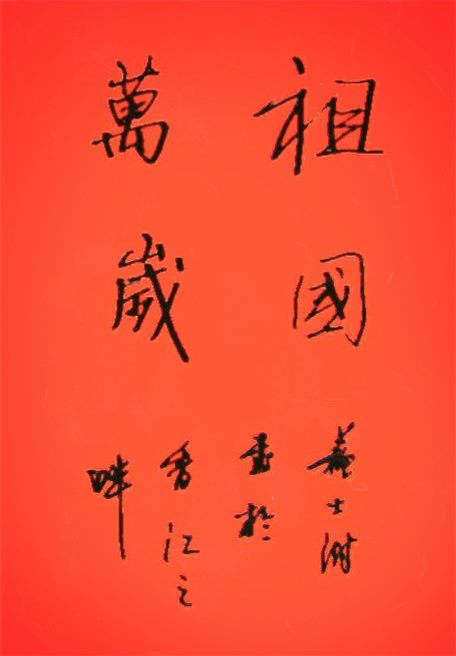 祖國
萬歲
義士
書於
香江之
畔